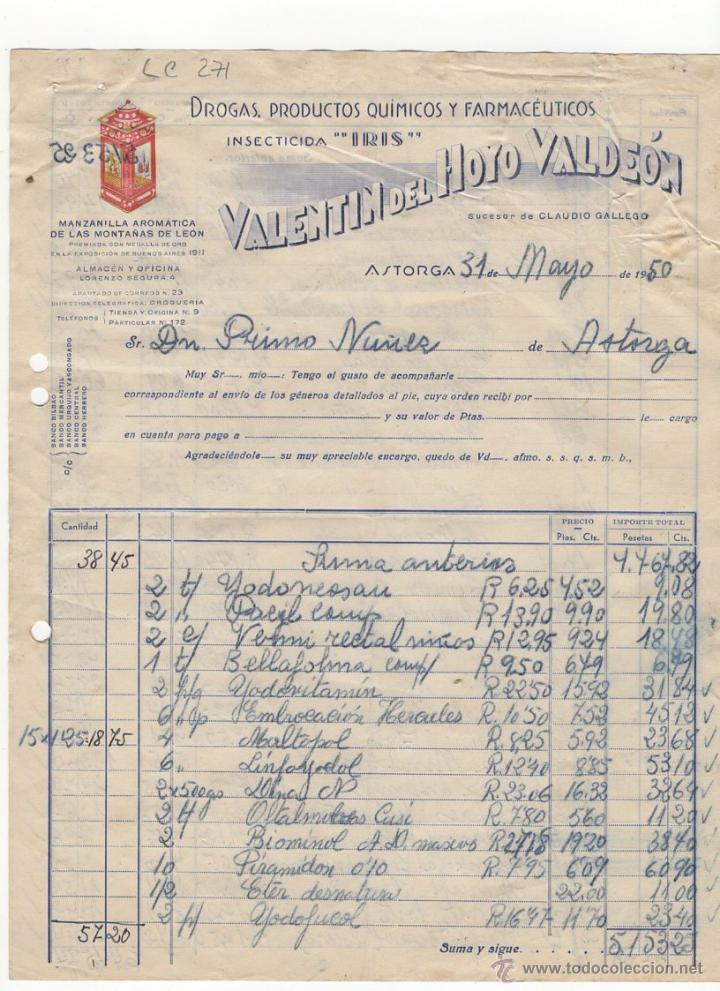 LC 271
DROGAS, PRODUCTOS QUÍMICOS Y FARMACÉUTICOS
INSECTICIDA "IRIS"
VALENTIN DEL HOYO VALDEÓN
sucesor de CLAUDIO GALLEGO
MANZANILLA AROMÁTICA
DE LAS MONTAÑAS DE LEÓN
PREMIADA CON MEDALLA DE ORO
EN LA EXPOSICIÓN DE BUENOS AIRES 1911
ALMACÉN Y OFICINA
LORENZO SEGURA, 4
APARTADO DE CORREOS N. 23
DIRECCIÓN TELEGRÁFICA: DROGUERÍA
TELÉFONOS TIENDA Y OFICINA Nº 9
PARTICULAR Nº 172
ASTORGA 31 de Mayo de 1950
Sr. Dn. Primo Nuñez de Astorga
Muy Sr. mío: Tengo el gusto de acompañarle
correspondiente al envío de los géneros detallados al pie, cuya orden recibí por
y su valor de Ptas. le cargo
en cuenta para pago a
Agradeciéndole su muy apreciable encargo, quedo de Vd. afmo. s. s. q. s. m. b.,
c/c BANCO BILBAO
BANCO MERCANTIL
BANCO URQUIJO VASCONGADO
BANCO CENTRAL
BANCO HERRERO
Cantidad PRECIO IMPORTE TOTAL
Ptas. Cts. Pesetas Cts.
38 45 Suma anterior 4.767,82
2 t/ Yodoneosan R 6,25 4,52 9,08
2 " comp R 13,90 9,90 19,80
2 c/ Vermi rectal niños R 12,95 9,24 18,48
1 t/ Bellafolina comp/ R 9,50 6,49 6,49
2 Yodovitamin R 22,50 15,92 31,84
6 Embrocación Hercules R. 10,50 7,52 45,12
15 x 1,25 = 18 75 4 Maltopol R. 8,25 5,92 23,68
6 " Linfoyodol R. 12,40 8,85 53,10
2 x 500 gs R. 23,06 16,32 32,64
2 Oftalmolosa Cusí R. 7,80 5,60 11,20
2 Biominol A.D. masivo 19,20 38,40
10 Piramidon 0'10 R. 7,95 6,09 60,90
1/2 Eter desnatura 22,00 11,00
2 p/ Yodofucol R. 16,47 11,70 23,40
57 20
Suma y sigue 5.153,23
todocoleccion
www.todocoleccion.net